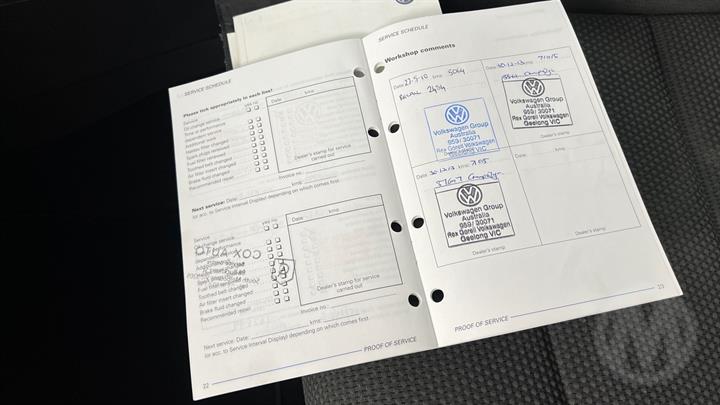 SERVICE SCHEDULE
Please tick appropriately in each line!
Service
yes no
Oil change service
Time or performance
dependent service
Additional work
Haldex filter changed
Spark plugs renewed
Fuel filter renewed
Toothed belt changed
Air filter insert changed
Brake fluid changed
Recommended repair
Date kms
Dealer's stamp for service
carried out
Invoice no.:
Next service: Date kms
(or acc. to Service Interval Display) depending on which comes first.
Service
yes no
Oil change service
Fuel filter renewed
Toothed belt changed
Air filter insert changed
Brake fluid changed
Recommended repair
Date kms
Dealer's stamp for service
carried out
Invoice no.:
Next service: Date kms
(or acc. to Service Interval Display) depending on which comes first.
22
PROOF OF SERVICE
SERVICE SCHEDULE
Workshop comments
Date kms 5064
Volkswagen Group
Australia
959/ 30071
Rex Gorell Volkswagen
Geelong VIC
Dealer's stamp
Date 30-12-13 kms
Volkswagen Group
Australia
959/ 30071
Rex Gorell Volkswagen
Geelong VIC
Dealer's stamp
Date 30-12-13 kms
Volkswagen Group
Australia
959/ 30071
Rex Gorell Volkswagen
Geelong VIC
Dealer's stamp
Date kms
Dealer's stamp
PROOF OF SERVICE
23